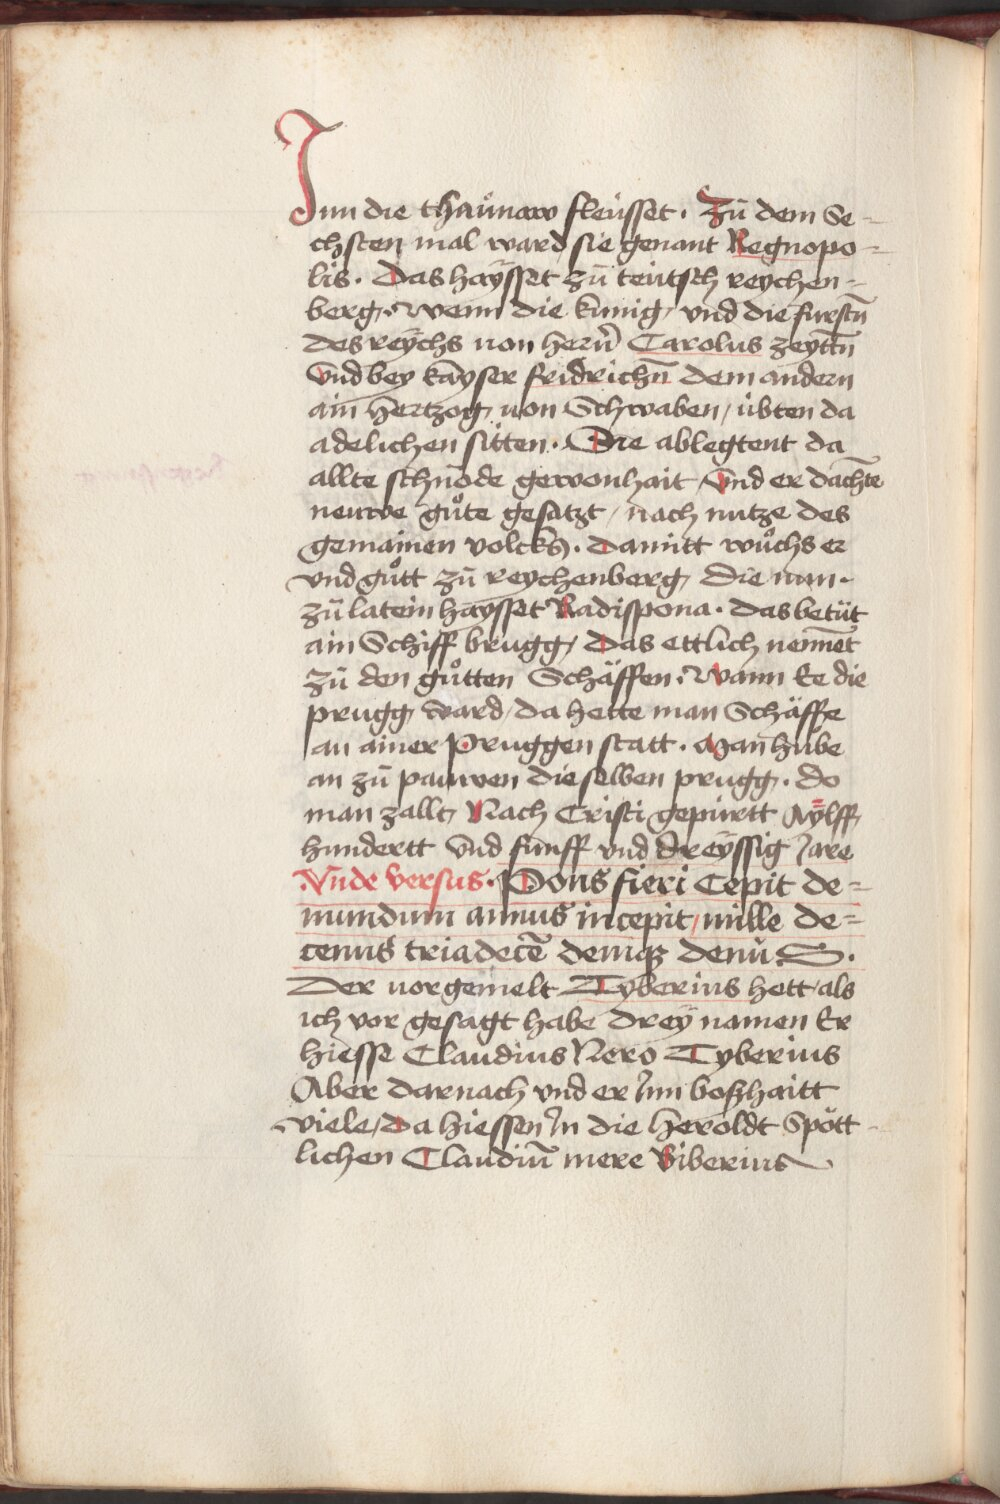 Inn die thaůnaw fleüsset. Zū dem Se-
chsten mal ward sie genant Regnopo-
lis. Das haÿsset zū teütsch reychen-
berg. Wenn die künig, vnd die fürstn̄
des reÿchs von hern̄ Carolus zeyttn̄
Vnd bey kāyser fridrichn̄ dem andern
ain hertzog von Schwaben / übten da
adelichen sitten. Die ablegtent da
allte schnöde gewonhait / Vnd er dachte
neuwe gůte gesatzt / nach nutze des
gemainen volcks. Damitt wůchs er
vnd gůtt zū reychenberg, die nun.
zū latein haÿsset Radispona. Das betüt
ain Schiff brugg / Das ettlich nennet
zū den gůtten Schäffen. Wann Ee die
prugg ward / da hette man Schäffe
an ainer Pruggen statt. Man hübe
an zū pauwen dieselben prugg. do
man zallt, Nach Cristi gepürtt Aÿlff
hundertt Vnd fünff vnd dreÿssig Jare
Vnde versus. Pons fieri Cepit de-
mundum annus incepit / mille de-
cenus triadecē deniqꝫ denū S.
Der vorgemelt Tyberius hett als
ich vor gesagt habe dreÿ namen Er
hiesse Claudius Nero Tyberius
Aber darnach vnd er Jnn boßhaitt
viele / Da hiessen Jn die heroldt Spött-
lichen Claudiū mere Biberius